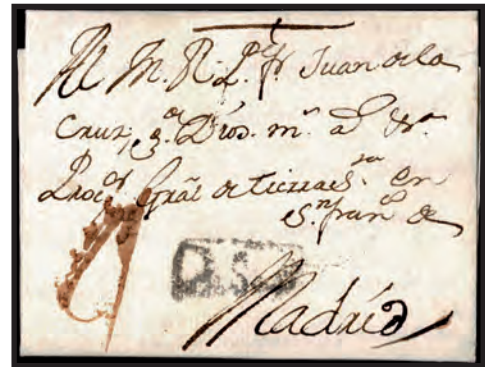 Al M. R. P.e Fr. Juan de la
Cruz, g.e Dios. m.s a.s
Proc.or Gral de Tierra S.ta en
S.n Fran.co de
Madrid